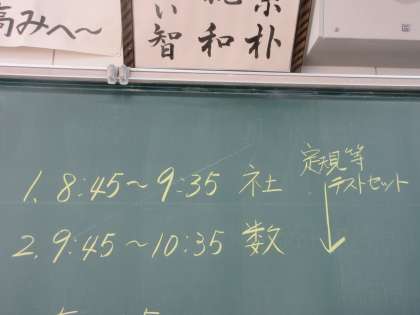 高みへ〜
い智
和
朴
1. 8:45〜9:35 社
2. 9:45〜10:35 数
定規等
テストセット